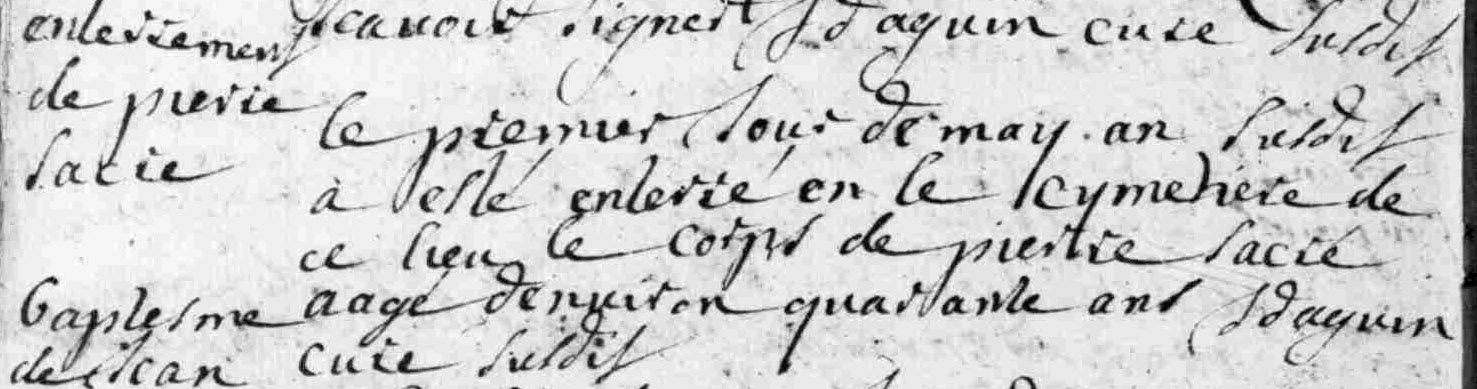 enterrement
de pierre
sacré
scavoir signer J daquin curé susdit
le premier jour de may an susdit
à esté enterré en le cymetiere de
ce lieu le corps de pierre sacré
aagé denuiron quarante ans J daquin
curé susdit
baptesme
de jean